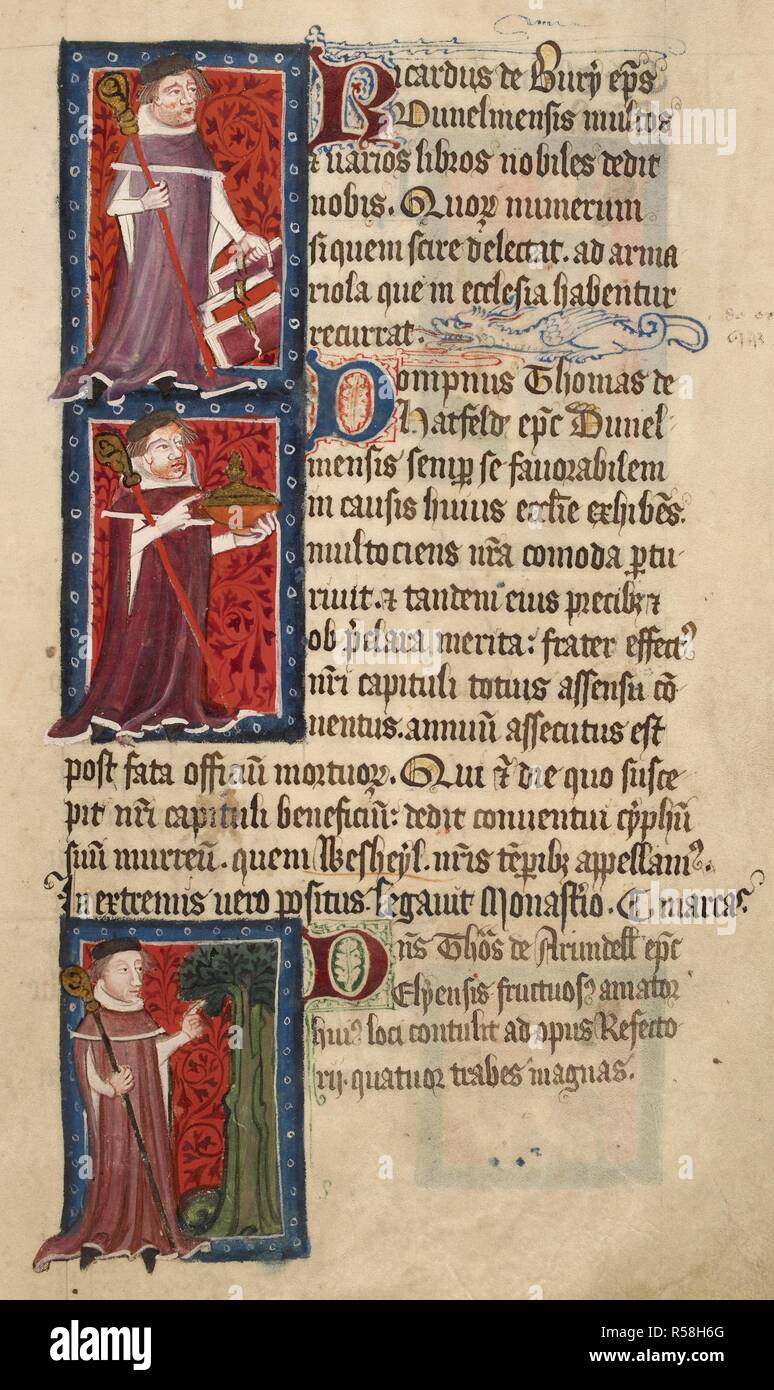 Ricardus de Bury ep̃s
Dunelmensis multos
⁊ varios libros nobiles dedit
nobis. Quoꝝ numerum
si quem scire delectat. ad arma
riola que in ecclesia habentur
recurrat.
Dompnus Thomas de
Hatfeld ep̃c Dunel
mensis semꝑ se fauorabilem
in causis huius eccl̃ie exhibẽs.
multociens nr̃a comoda ꝑtu
riuit. ⁊ tandem eius precibꝫ ⁊
ob p̃clara merita: frater effectꝰ
nr̃i capituli totius assensu cõ
uentus. annuũ assecutus est
post fata officiũ mortuoꝝ. Qui ⁊ die quo susce
pit nr̃i capituli beneficiũ: dedit conuentui cyphũ
suũ murreũ. quem Wesheyl. nr̃is tẽpibꝫ appellamꝰ.
In extremis uero positus. legauit Monast̃io. C. marcas.
Dñs Thõs de Arundell ep̃c
Elyensis fructuosꝰ amator
huiꝰ loci contulit ad opus Refecto
rij. quatuor trabes magnas.
alamy
Image ID: R58H6G
www.alamy.com